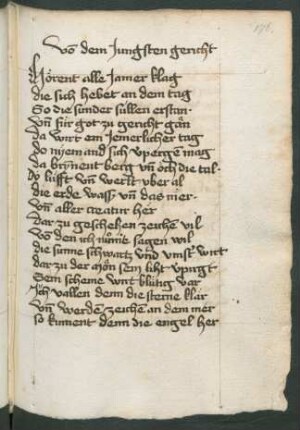 vō dem Jungsten gericht
Hörent alle Jamer klag
die sich hebet an dem tag
So die sunder sullen erstan
vn̄ für got zu gericht gan
da wirt am Jemerlicher tag
do niemand sich v̈gen mag
da brinent berg vn̄ och die tal
der lufft vn̄ werlt vber al
die erde wasser vn̄ das mer
vn̄ aller creatur her
Dar zu geschehen zeichen vil
Vō den ich nu sagen wil
die sunne schwartz vnd vinst wirt
dar zu der mōn sein licht
Sein scheine wirt blutig var
Ich vallen denn die sterne klar
vn̄ werden zeichen an dem mer
so kument denn die engel her